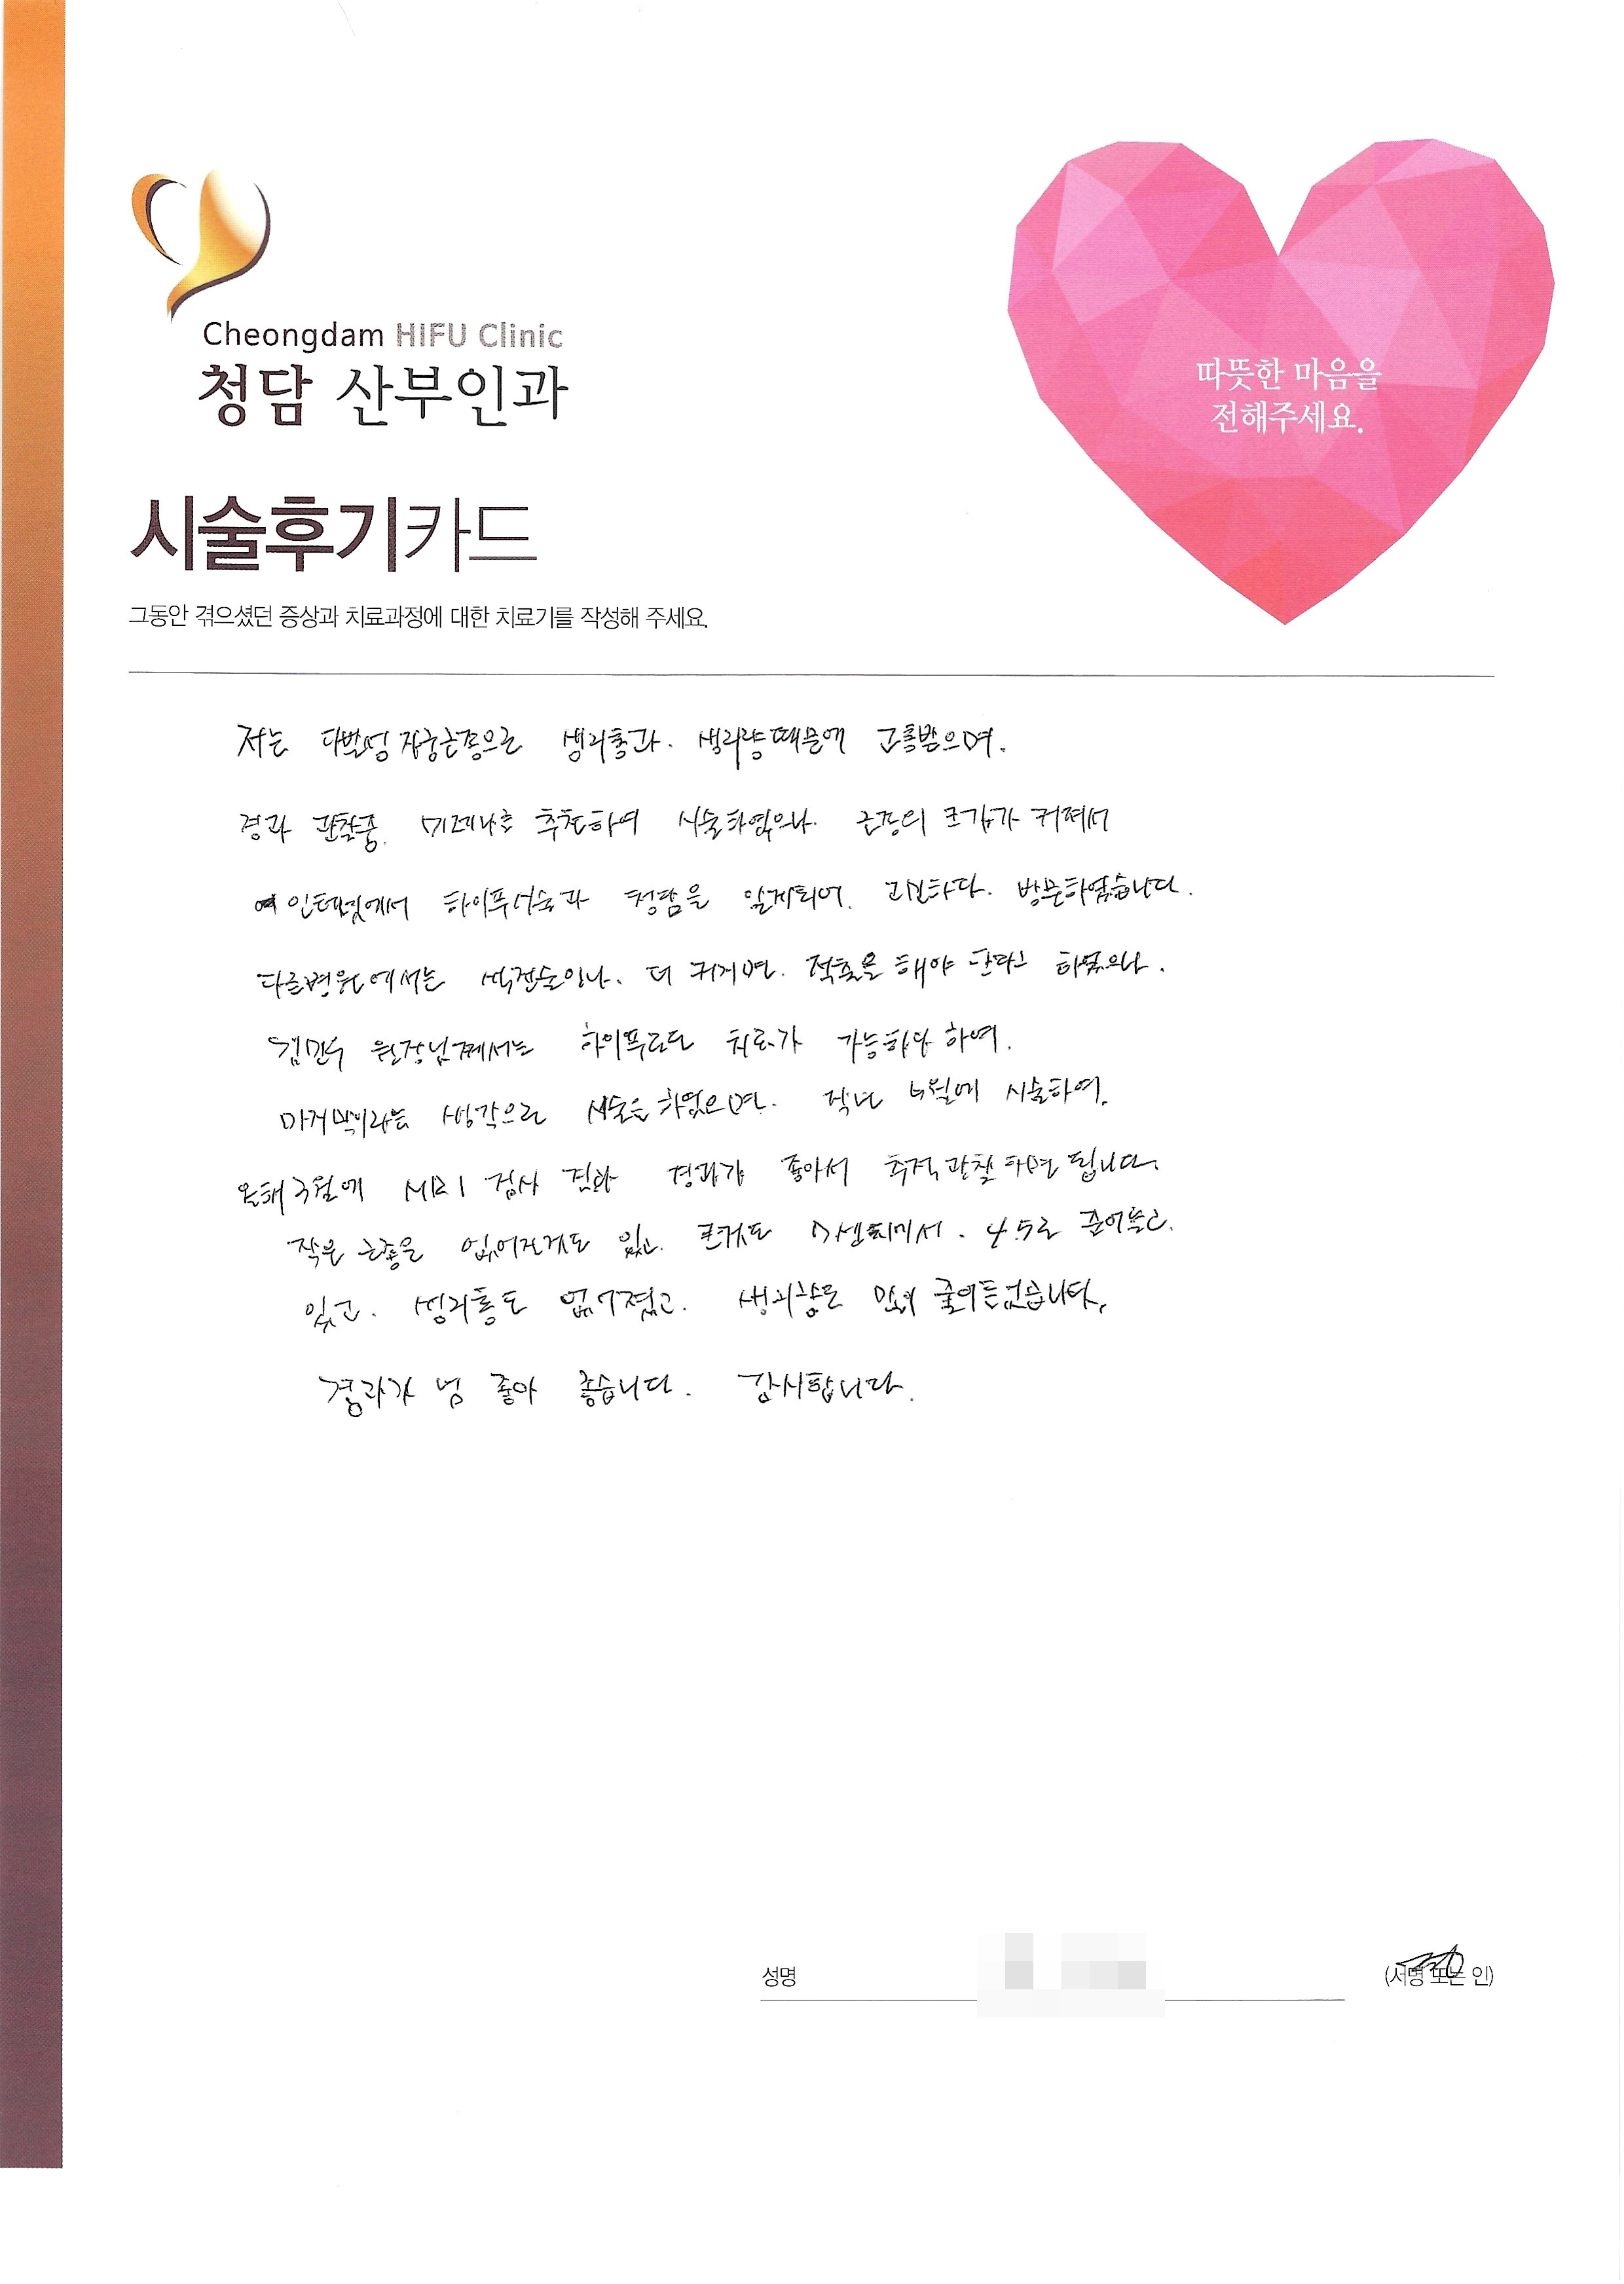 Cheongdam HIFU Clinic
청담 산부인과
따뜻한 마음을
전해주세요.
시술후기카드
그동안 겪으셨던 증상과 치료과정에 대한 치료기를 작성해 주세요.
저는 다발성 자궁근종으로 생리통과. 생리량때문에 고통받으며.
경과 관찰중. 미레나를 추천하여 시술하였으나. 근종의 크기가 커져서
인터넷에서 하이푸시술과 청담을 알게되어. 고민하다. 방문하였습니다.
다른병원에서는 색전술이나. 더 커지면. 적출을 해야 한다고 하였으나.
김민우 원장님께서는 하이푸로도 치료가 가능하다 하여.
마지막이라는 생각으로 시술을 하였으며. 작년 4월에 시술하여.
올해 3월에 MRI 검사 결과 경과가 좋아서 추적관찰하면 됩니다.
작은 근종은 없어진것도 있고. 큰것도 7센치에서. 4.5로 줄어들고.
있고. 생리통도 없어졌고. 생리량도 많이 줄어들었습니다.
경과가 넘 좋아 좋습니다. 감사합니다.
성명
(서명 또는 인)